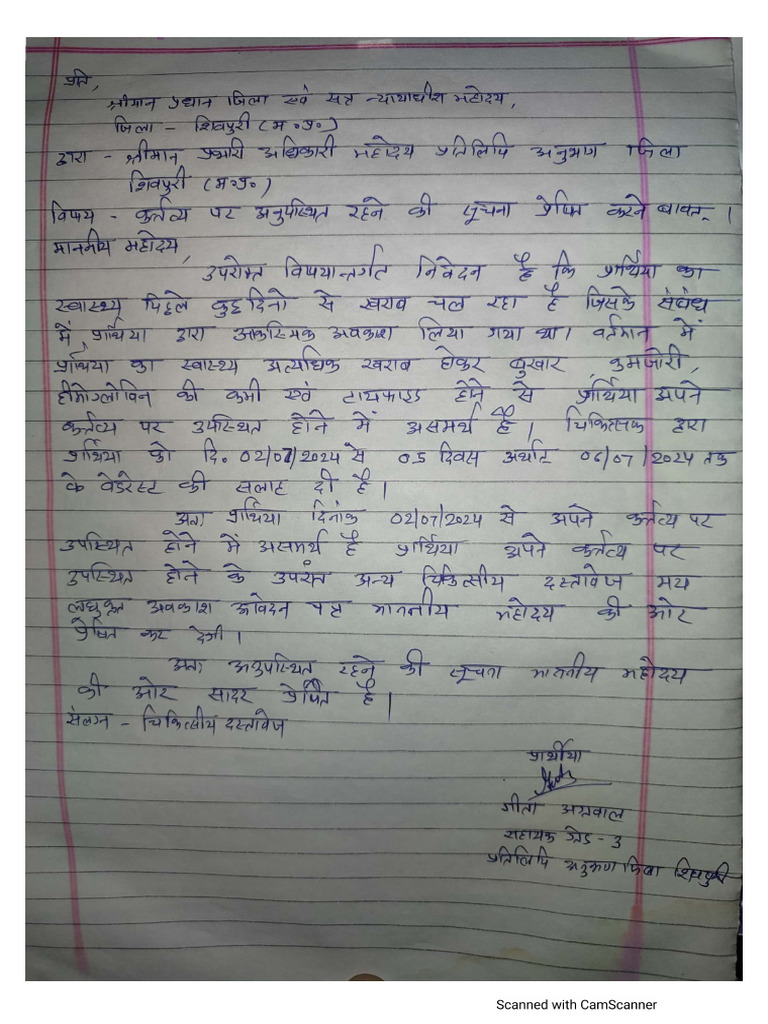 प्रति,
श्रीमान प्रधान जिला एवं सत्र न्यायाधीश महोदय,
जिला - शिवपुरी (म०प्र०)
द्वारा - श्रीमान प्रभारी अधिकारी महोदय प्रतिलिपि अनुभाग जिला
शिवपुरी (म०प्र०)
विषय - कर्त्तव्य पर अनुपस्थित रहने की सूचना प्रेषित करने बावत् ।
माननीय महोदय,
उपरोक्त विषयान्तर्गत निवेदन है कि प्रार्थिया का
स्वास्थ्य पिछले कुछ दिनो से खराब चल रहा है जिसके संबंध
में प्रार्थिया द्वारा आकस्मिक अवकाश लिया गया था। वर्तमान में
प्रार्थिया का स्वास्थ्य अत्यधिक खराब होकर बुखार, कमजोरी,
हीमोग्लोविन की कमी एवं टायफाइड होने से प्रार्थिया अपने
कर्त्तव्य पर उपस्थित होने में असमर्थ है। चिकित्सक द्वारा
प्रार्थिया को दि. 02/07/2024 से 05 दिवस अर्थात 06/07/2024 तक
के वेडरेस्ट की सलाह दी है।
अतः प्रार्थिया दिनांक 02/07/2024 से अपने कर्त्तव्य पर
उपस्थित होने में असमर्थ है प्रार्थिया अपने कर्त्तव्य पर
उपस्थित होने के उपरांत अन्य चिकित्सीय दस्तावेज मय
लघुकृत अवकाश आवेदन पत्र माननीय महोदय की ओर
प्रेषित कर देगी।
अतः अनुपस्थित रहने की सूचना माननीय महोदय
की ओर सादर प्रेषित है।
संलग्न - चिकित्सीय दस्तावेज
प्रार्थीया
गीता अग्रवाल
सहायक ग्रेड - 3
प्रतिलिपि अनुभाग जिला शिवपुरी
Scanned with CamScanner